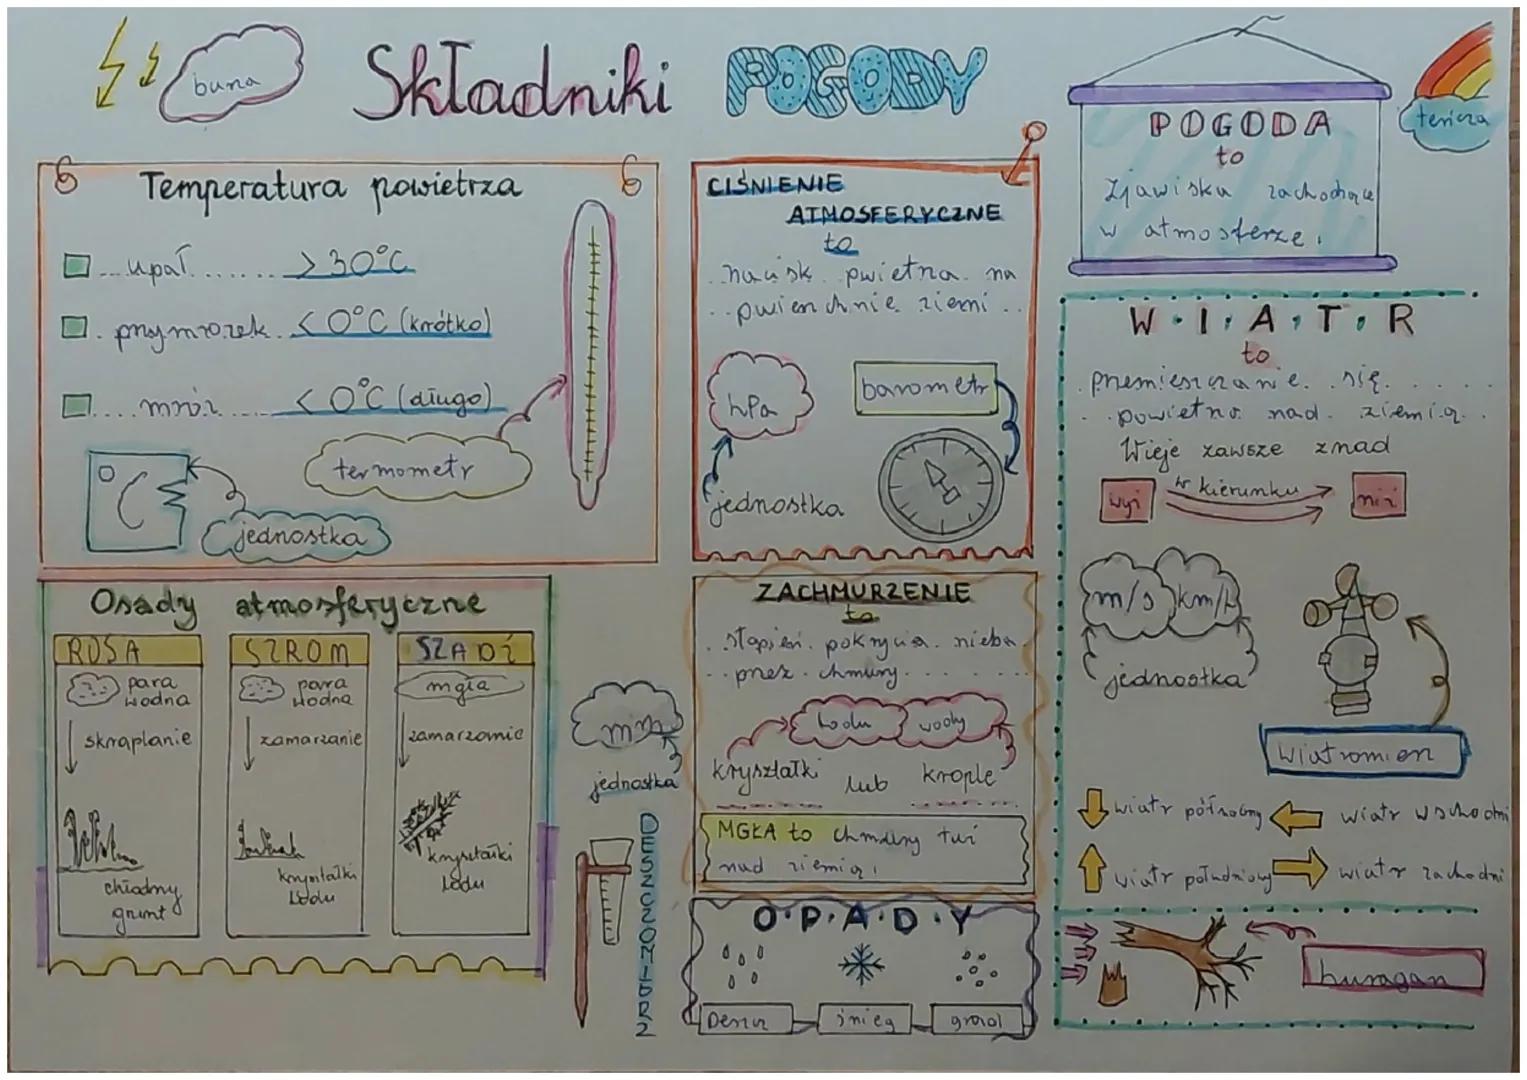 burza
Składniki POGODY
tęcza
POGODA
to
Zjawiska zachodzące
w atmosferze.
Temperatura powietrza
upał > 30°C
przymrozek < 0°C (krótko)
mróz < 0°C (długo)
termometr
°C
jednostka
CIŚNIENIE
ATMOSFERYCZNE
to
nacisk powietrza na
powierzchnię ziemi
hPa
barometr
jednostka
W.I.A.T.R
to
przemieszczanie się
powietrza nad ziemią
Wieje zawsze znad
wyż w kierunku niż
m/s km/h
jednostka
wiatromierz
wiatr północny wiatr wschodni
wiatr południowy wiatr zachodni
huragan
Osady atmosferyczne
ROSA
para
wodna
skraplanie
chłodny
grunt
SZRON
para
wodna
zamarzanie
kryształki
lodu
SZADŹ
mgła
zamarzanie
kryształki
lodu
mm
jednostka
DESZCZOMIERZ
ZACHMURZENIE
to
stopień pokrycia nieba
przez chmury
lodu wody
kryształki lub krople
MGŁA to chmury tuż
nad ziemią.
O.P.A.D.Y
Deszcz śnieg grad